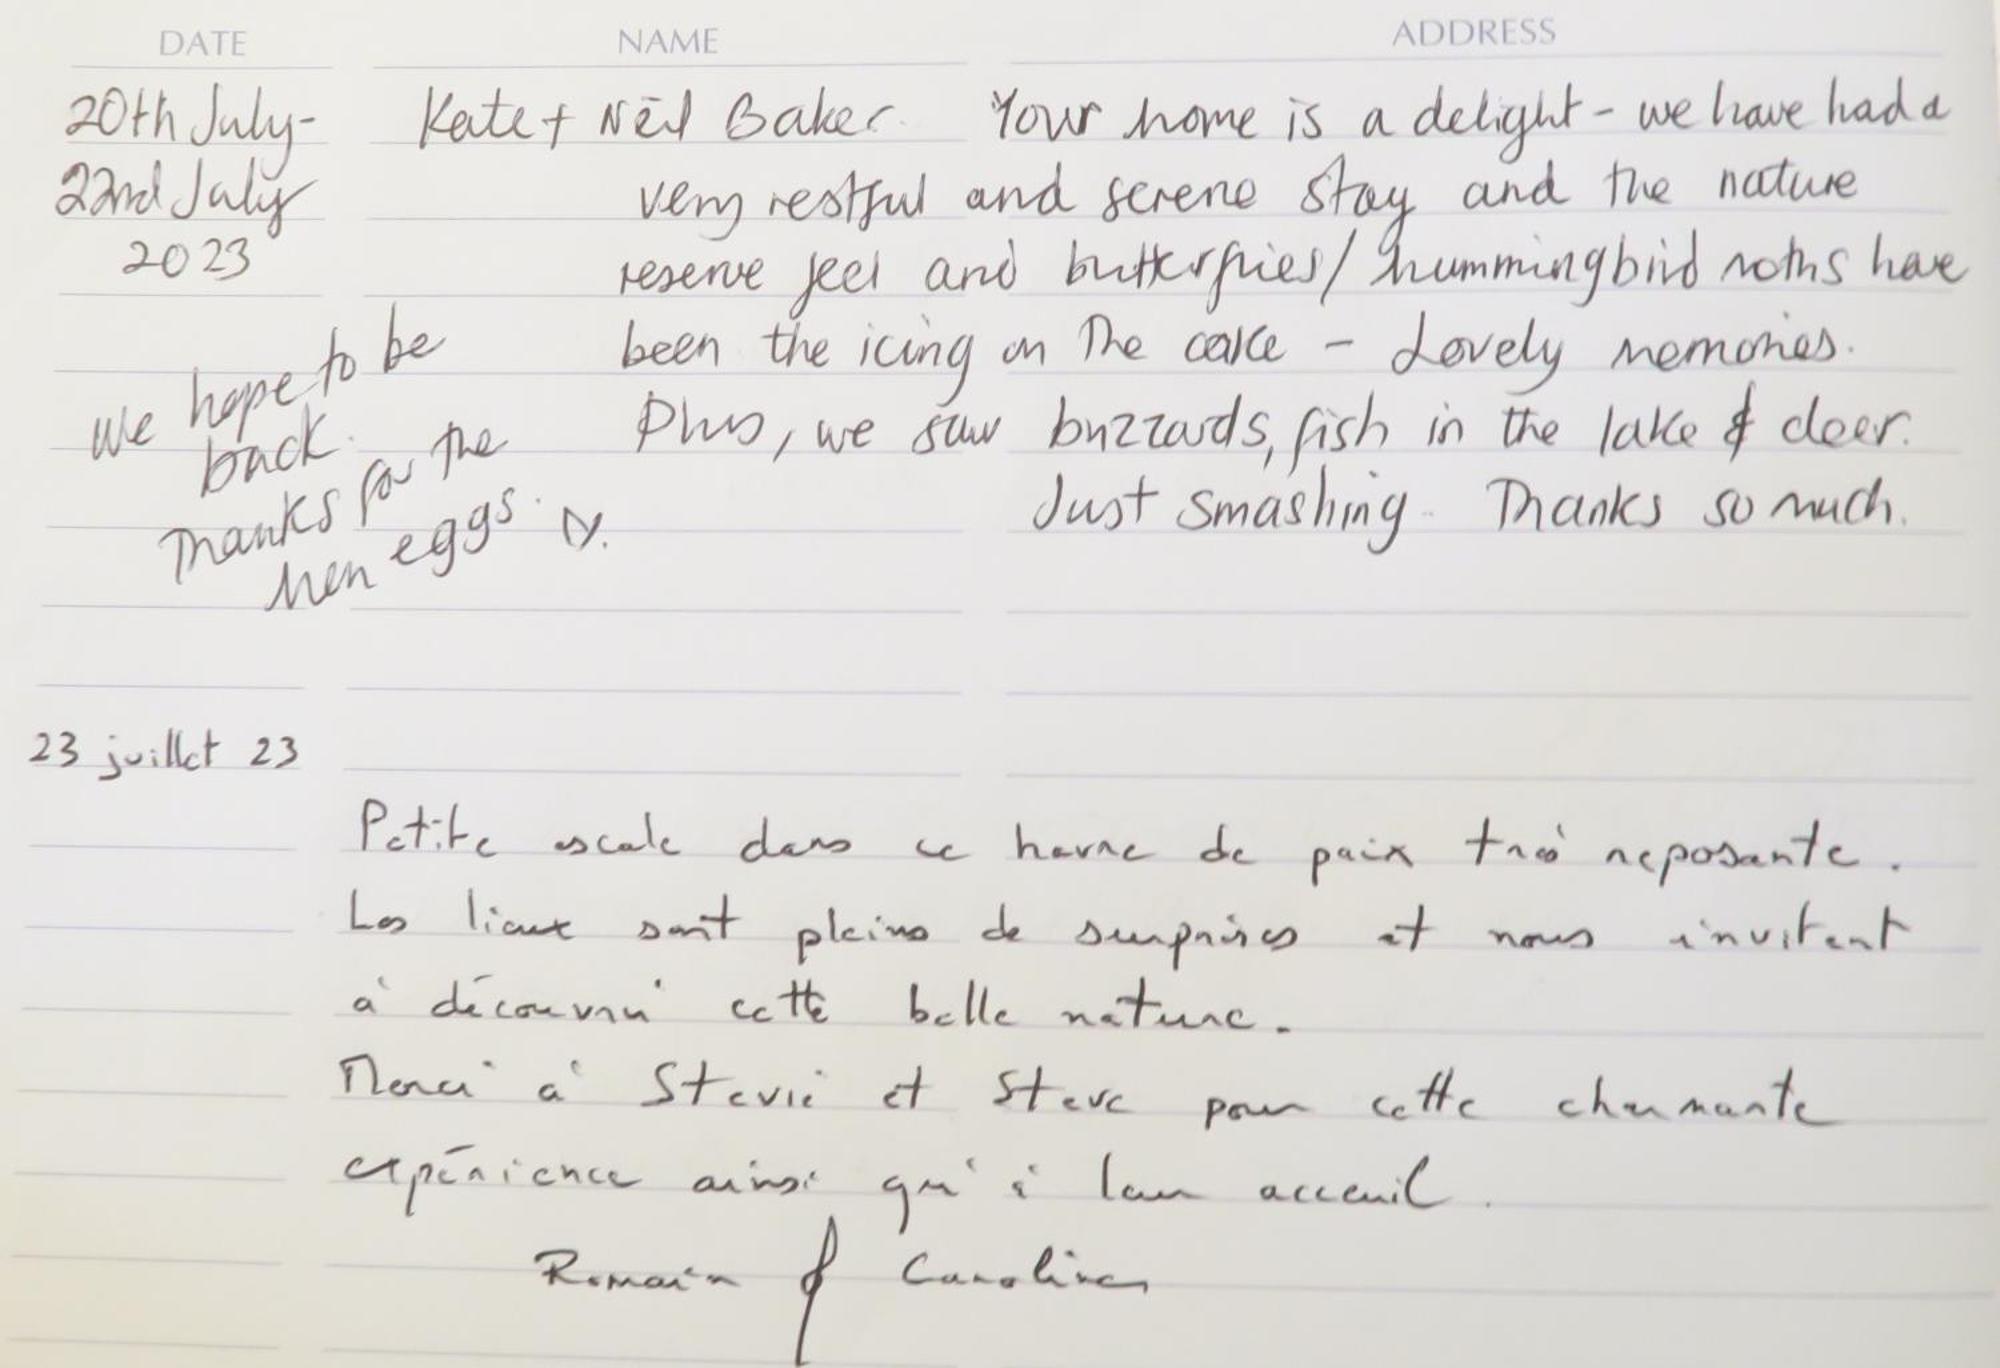 DATE NAME ADDRESS
20th July- Kate + Neil Baker. Your home is a delight - we have had a
22nd July very restful and serene stay and the nature
2023 reserve feel and butterflies/hummingbird moths have
been the icing on the cake - Lovely memories.
Plus, we saw buzzards, fish in the lake & deer.
Just smashing. Thanks so much.
We hope to be
back.
Thanks for the
hen eggs. N.
23 juillet 23
Petite escale dans ce havre de paix très reposante.
Les lieux sont pleins de surprises et nous invitent
à découvrir cette belle nature.
Merci à Stevie et Steve pour cette charmante
expérience ainsi qu'à leur acceuil.
Romain & Caroline